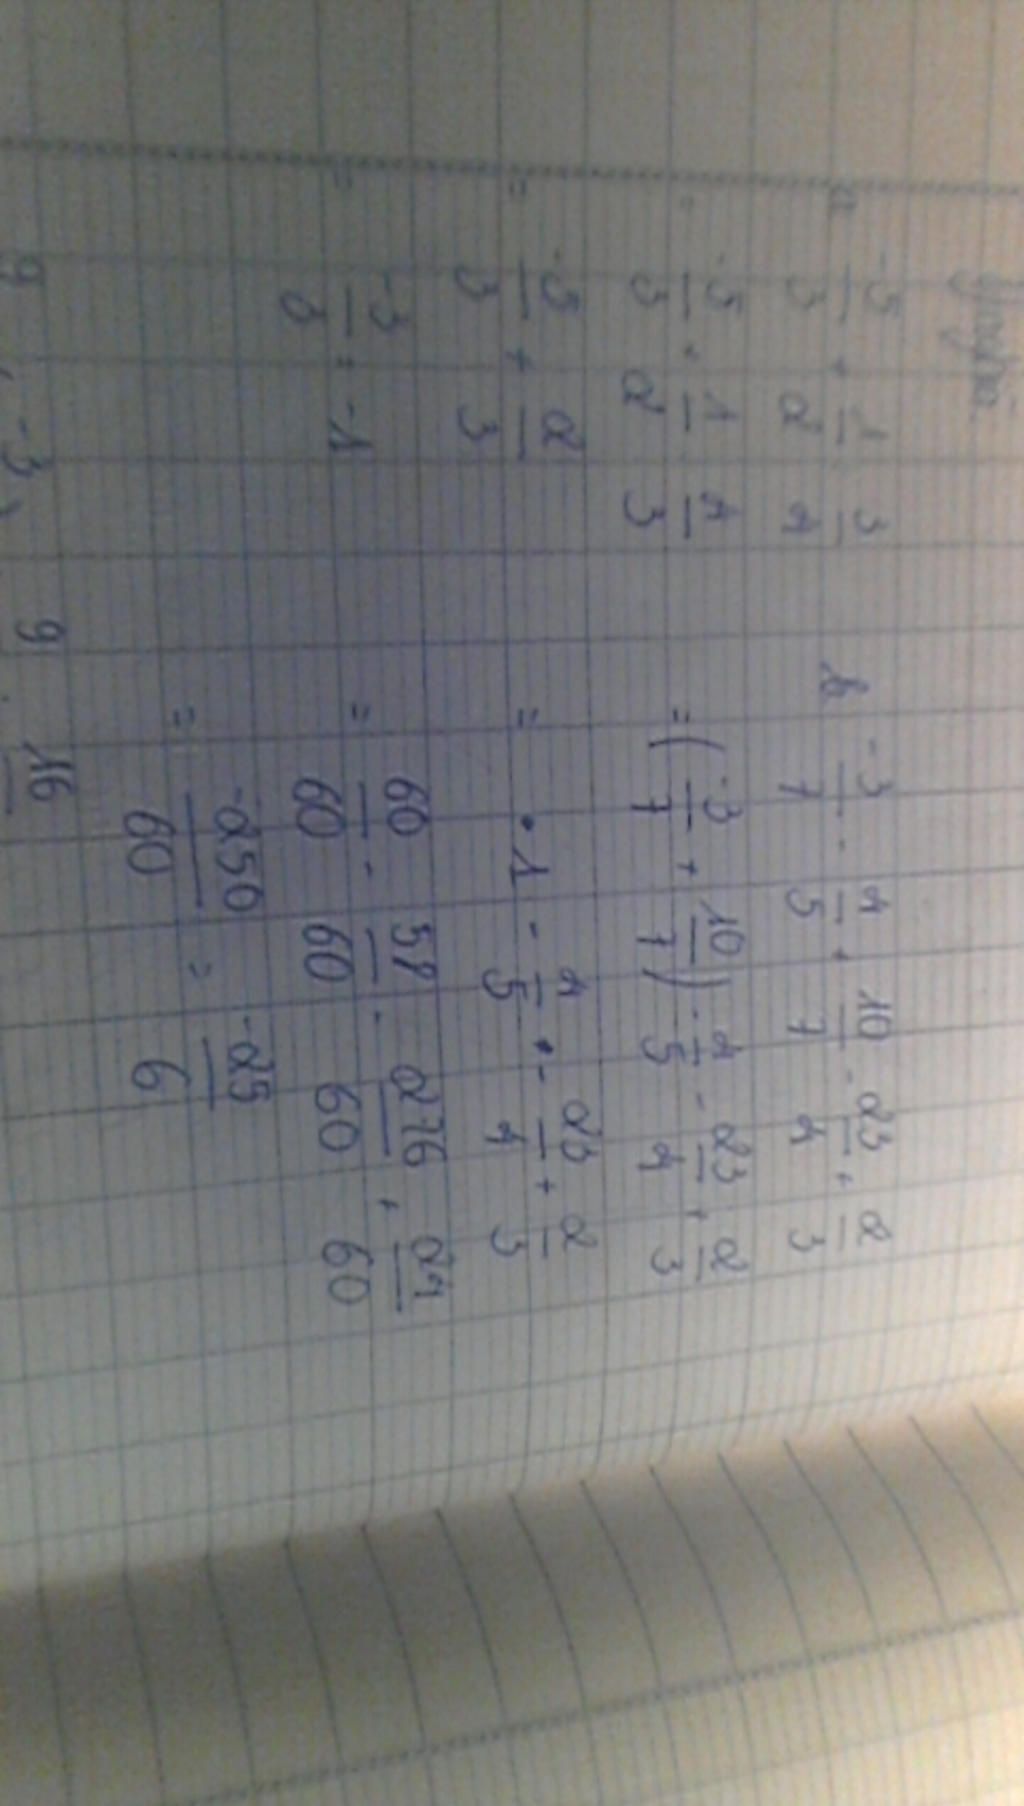 a -5/3 + 1/2 3/4
= -5/3 + 1/2 4/3
= -5/3 + 2/3
= -3/3 = -1
b -3/7 - 4/5 + 10/7 - 23/4 + 2/3
= (-3/7 + 10/7) - 4/5 - 23/4 + 2/3
= 1 - 4/5 - 23/4 + 2/3
= 60/60 - 58/60 - 276/60 + 24/60
= -250/60 = -25/6
9 ( -3 ) 9 16